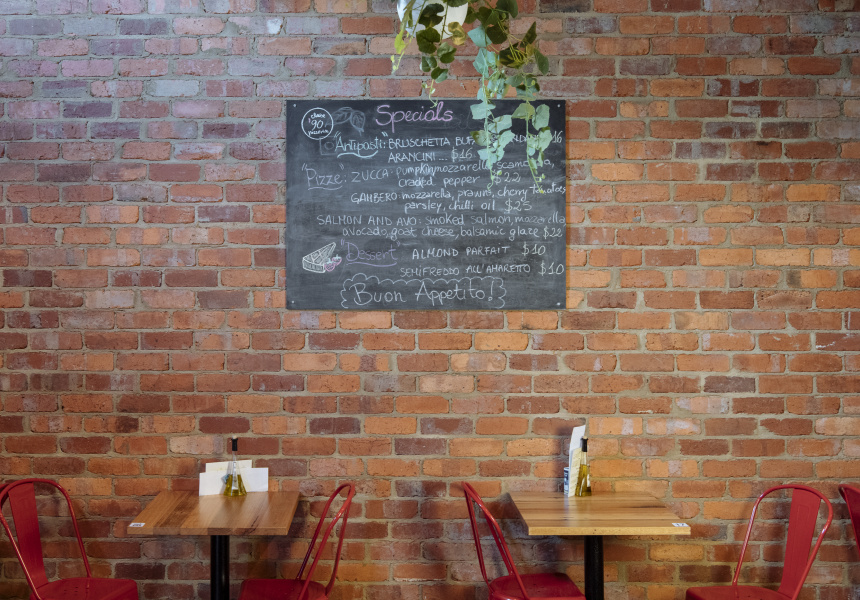 Specials
"Antipasti": BRUSCHETTA
ARANCINI... $16
"Pizze": ZUCCA: pumpkin, mozzarella, scamorza,
cracked pepper $22
GAMBERO mozzarella, prawns, cherry tomatoes
parsley, chilli oil $25
SALMON AND AVO: smoked salmon, mozzarella
avocado, goat cheese, balsamic glaze $22
"Dessert" ALMOND PARFAIT $10
SEMIFREDDO ALL'AMARETTO $10
Buon Appetito!